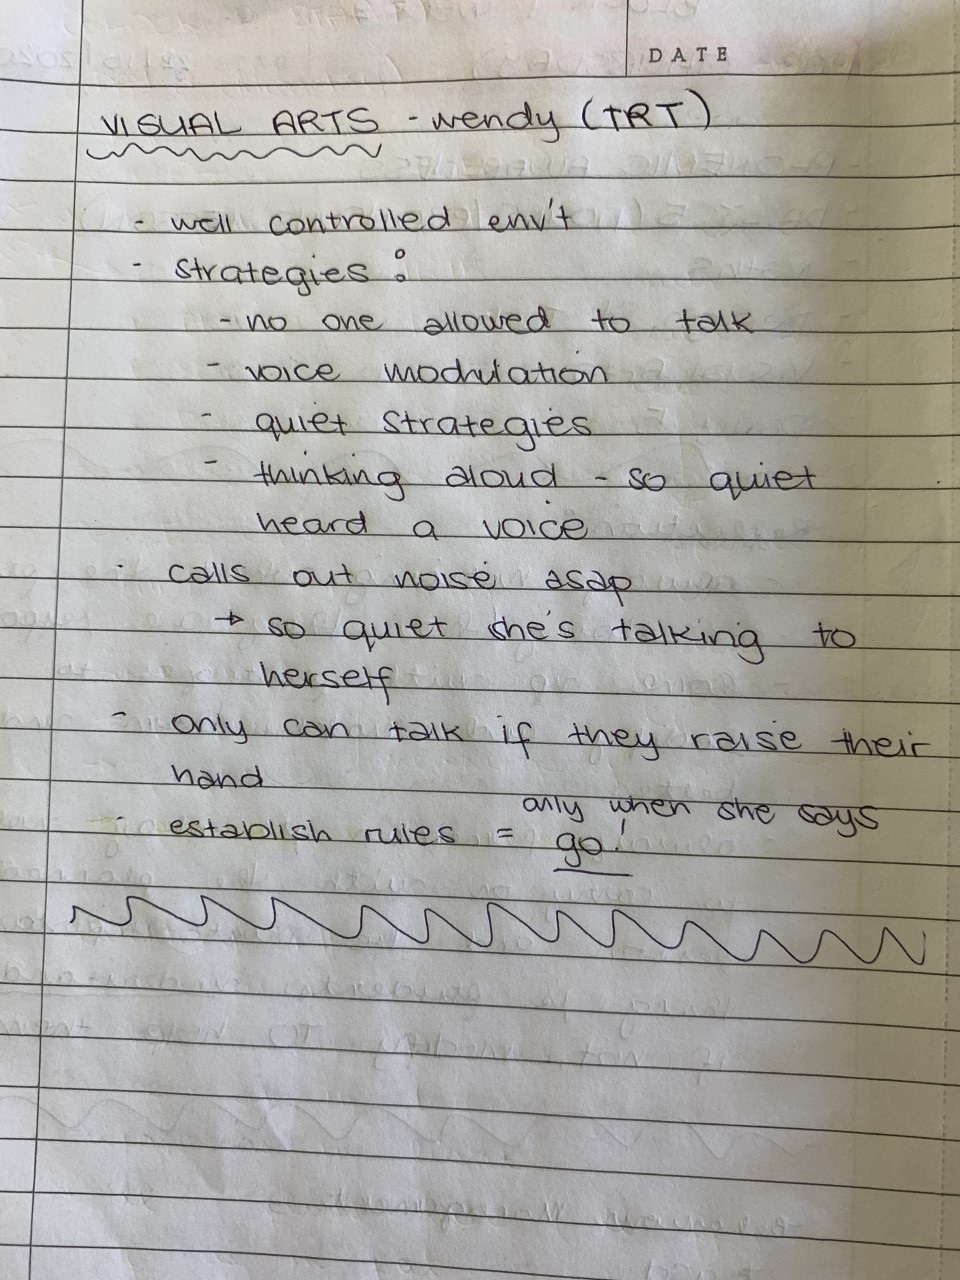 DATE
VISUAL ARTS - wendy (TRT)
- well controlled env't
- strategies :
- no one allowed to talk
- voice modulation
- quiet strategies
- thinking aloud - so quiet
heard a voice
- calls out noise asap
→ so quiet she's talking to
herself
- only can talk if they raise their
hand
- establish rules = only when she says
go!